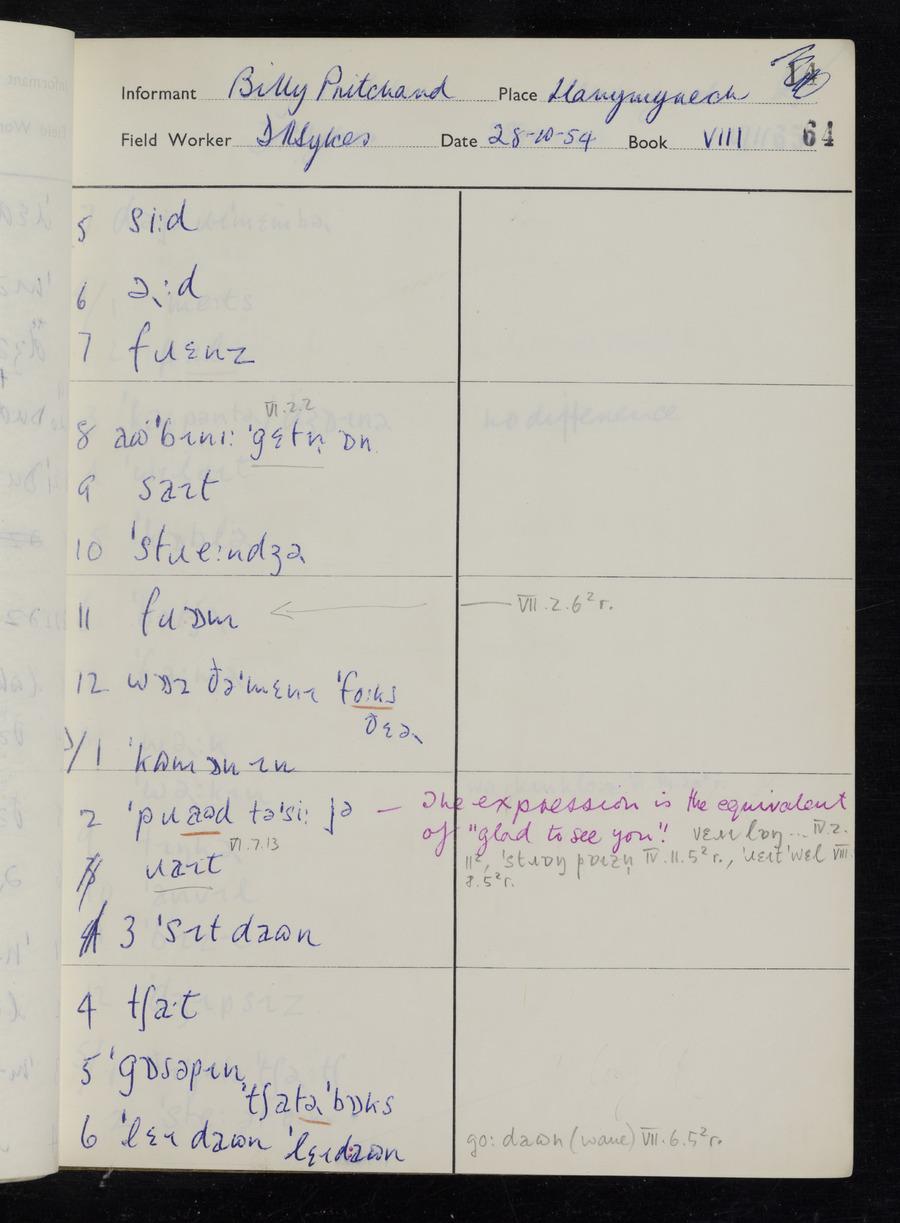 Informant Billy Pritchard Place Llanymynech
Field Worker DRSykes Date 28-10-54 Book VIII 64
5 si:d
6 ə˞:d
7 fɹɛnz
VI.2.2
8 aω'bɪnɪ: 'gɛtn̩ ɒn
9 saɪt
10 'stɹe:ndʒə˞
11 fɹɒm
VII.2.6²r.
12 wɒz ðə'mɛnɪ 'fo:ks
ðɛə˞
3/1 'kωmɒnɪn
2 'pɹaωd tə'si: jə — The expression is the equivalent
of "glad to see you"! vɛɹɪ lɒŋ... IV.2.
VI.7.13
ɹaɪt
11², 'stɹɒŋ pɒɪzn̩ IV.11.5²r., 'ɹeɪt'wɛl VIII.
8.5²r.
3 'sɪtdaωn
4 tʃa·t
5 'gɒsəpɪn
'tʃatə˞'bɒks
6 'lɛɪ daωn 'lɛɪdaωn
go: daωn (wane) VII.6.5²r.